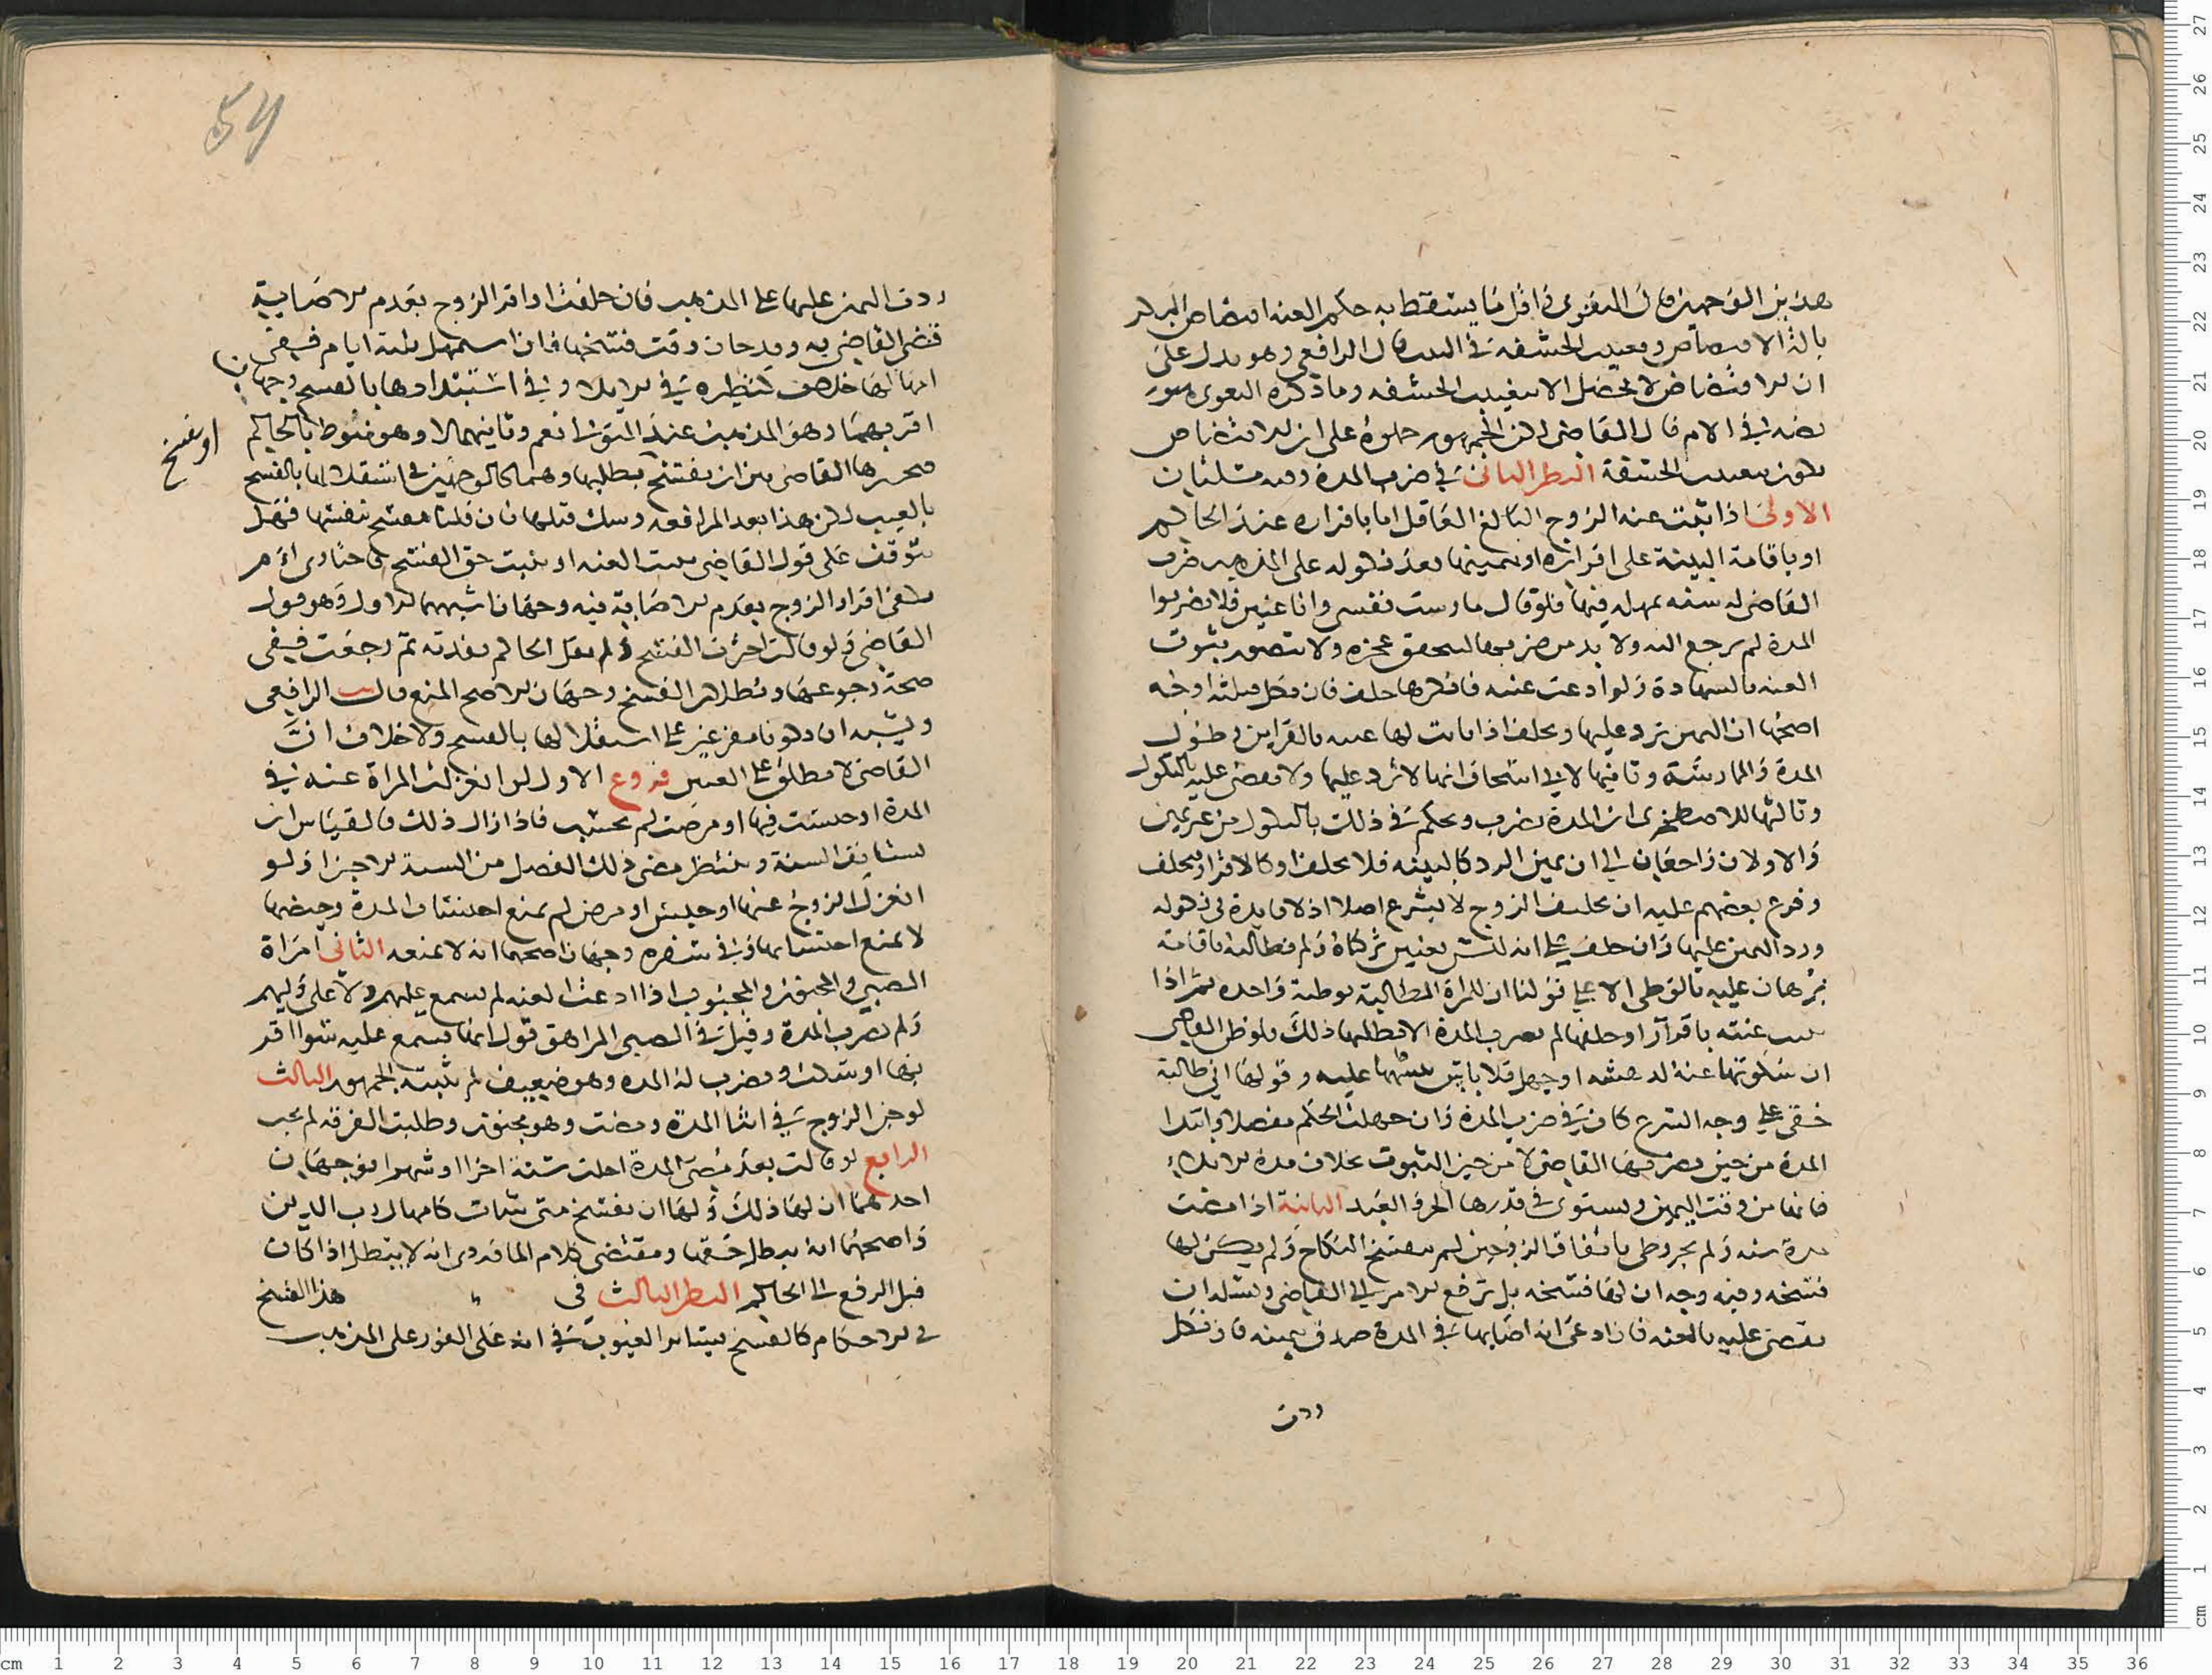 هذين الوجهين قال البغوي واقل ما يسقط به حكم العنه افتضاض البكر
بالة الافتضاض وتغييب الحشفة في الثيب قال الرافعي وهو يدل على
ان الافتضاض لا يحصل الا بتغييب الحشفه وما ذكره البغوي
نصه في الام قال القاضي لكن الجمهور حملوه على ان الافتضاض
يكون بتغييب الحشفة النظر الثاني في ضرب المدة وفيه مسئلتان
الاولى اذا ثبتت عنة الزوج البالغ العاقل اما باقراره عند الحاكم
او باقامة البينة على اقراره او بيمينها بعد نكوله على المذهب ضرب
القاضي له سنه يمهله فيها فلو قال مارست نفسي وانا عنين فلا تضربوا
المدة لم نرجع اليه ولا بد من ضربها ليتحقق عجزه ولا يتصور ثبوت
العنه بالشهادة ولو ادعت عنته فانكرها حلف فان نكل فثلثة اوجه
اصحها ان اليمين ترد عليها وتحلف اذا بانت لها عنته بالقراين وطول
المدة والممارسة وثانيها لابي اسحاق انها لا ترد عليها ولا يقضى عليه بالنكول
وثالثها للاصطخري ان المدة تضرب ويحكم في ذلك بالنكول من غير يمين
والاولان راجعان الى ان يمين الرد كالبينه فلا يحلف او كالاقرار فيحلف
وفرع بعضهم عليه ان تحليف الزوج لا يشرع اصلا اذ لا فايدة في نكوله
ورد اليمين عليها وان حلف على انه ليس بعنين تركناه ولم نطالبه باقامة
برهان عليه بالوطي الا على قولنا ان للمراة المطالبة بوطئة واحده ثم اذا
ثبتت عنته باقرار او حلفها لم تضرب المدة الا بطلبها ذلك فلو ظن القاضي
ان سكوتها عنه لدهشه او جهل فلا باس بتنبيهها عليه وقولها اني طالبة
حقي على وجه الشرع كاف في ضرب المدة وان جهلت الحكم مفصلا وابتدا
المدة من حين يضربها القاضي لا من حين الثبوت بخلاف مدة الايلاء
فانها من وقت اليمين ويستوي في قدرها الحر والعبد الثانية اذا مضت
مدة سنه ولم يجر وطي باتفاق الزوجين لم ينفسخ النكاح ولم يكن لها
فسخه وفيه وجه ان لها فسخه بل ترفع الامر الى القاضي وتسئله ان
يقضي عليه بالعنه فان ادعى انه اصابها في المدة صدق بيمينه فان نكل
ردت
ردت اليمين عليها على المذهب فان حلفت او اقر الزوج بعدم الاصابة
قضى القاضي به وقد حان وقت فسخها فان استمهل ثلثة ايام ففي
امهالها خلاف كنظيره في الايلا وفي استبدادها بالفسخ وجهان
اقربهما وهو المذهب عند المتولي نعم وثانيهما لا وهو منوط بالحاكم
فيخيرها القاضي بين ان يفسخ بطلبها وهما كالوجهين في استقلالها بالفسخ
او تفسخ
بالعيب لكن هذا بعد المرافعه وتيك قبلها فان قلنا تفسخ بنفسها فهل
يتوقف على قول القاضي ثبتت العنه او يثبت حق الفسخ فاختاري ام
يكفي اقرار الزوج بعدم الاصابة فيه وجهان اشبههما الاول وهو قول
القاضي ولو قالت اخترت الفسخ ولم يقل الحاكم نفذته ثم رجعت ففي
صحة رجوعها وبطلان الفسخ وجهان الاصح المنع قال الرافعي
ويشبه ان يكونا مفرعين على استقلالها بالفسخ ولا خلاف ان
القاضي لا يطلق على العنين فروع الاول لو انعزلت المراة عنه في
المدة او حبست فيها او مرضت لم تحتسب فاذا زال ذلك فالقياس ان
تستانف السنة وينتظر مضي ذلك الفصل من السنة الاخرى ولو
انعزل الزوج عنها او حبس او مرض لم يمنع احتساب المدة وحيضها
لا يمنع احتسابها وفي سفره وجهان اصحهما انه لا يمنعه الثاني امراة
الصبي والمجنون والمجبوب اذا ادعت العنه لم يسمع عليهم ولا على وليهم
ولم تضرب المدة وقيل في الصبي المراهق قول انها تسمع عليه سوا اقر
بها او سكت وتضرب له المده وهو ضعيف لم يثبته الجمهور الثالث
لو جن الزوج في اثنا المدة ومضت وهو مجنون وطلبت الفرقه لم تجب
الرابع لو قالت بعد مضي المدة اجلته سنة اخرى او شهرا فوجهان
احدهما ان لها ذلك ولها ان تفسخ متى شات كامهال رب الدين
واصحهما انه يبطل حقها ومقتضى كلام الماوردي انه لا يبطل اذا كان
قبل الرفع الى الحاكم النظر الثالث في هذا الفسخ
في الاحكام كالفسخ بسائر العيوب في انه على الفور على المذهب